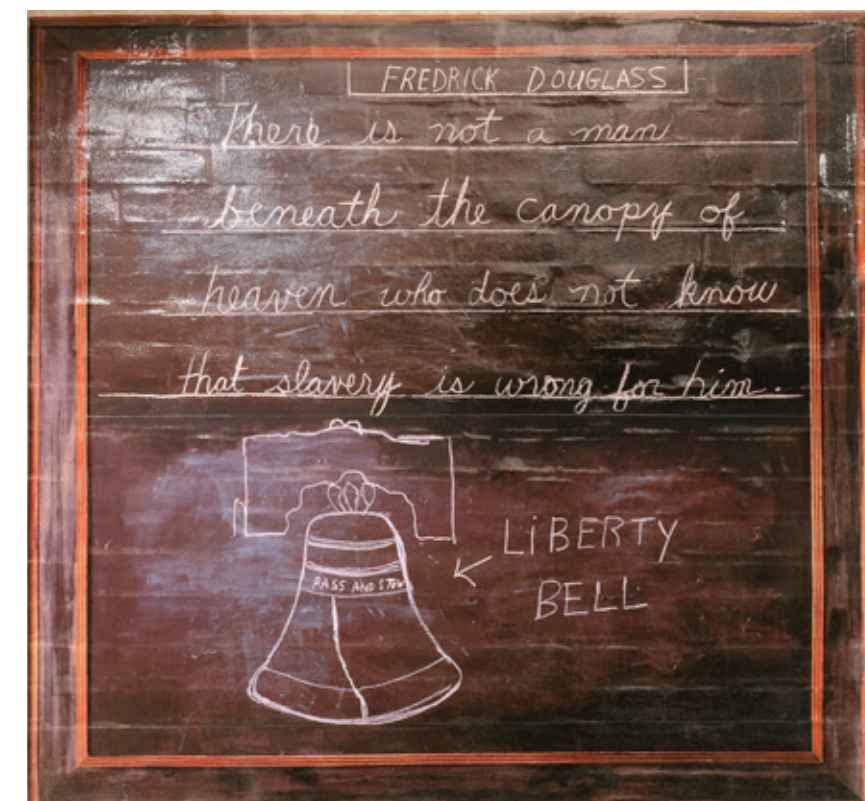 FREDRICK DOUGLASS
There is not a man
beneath the canopy of
heaven who does not know
that slavery is wrong for him.
PASS AND STOW
LiBERTY
BELL